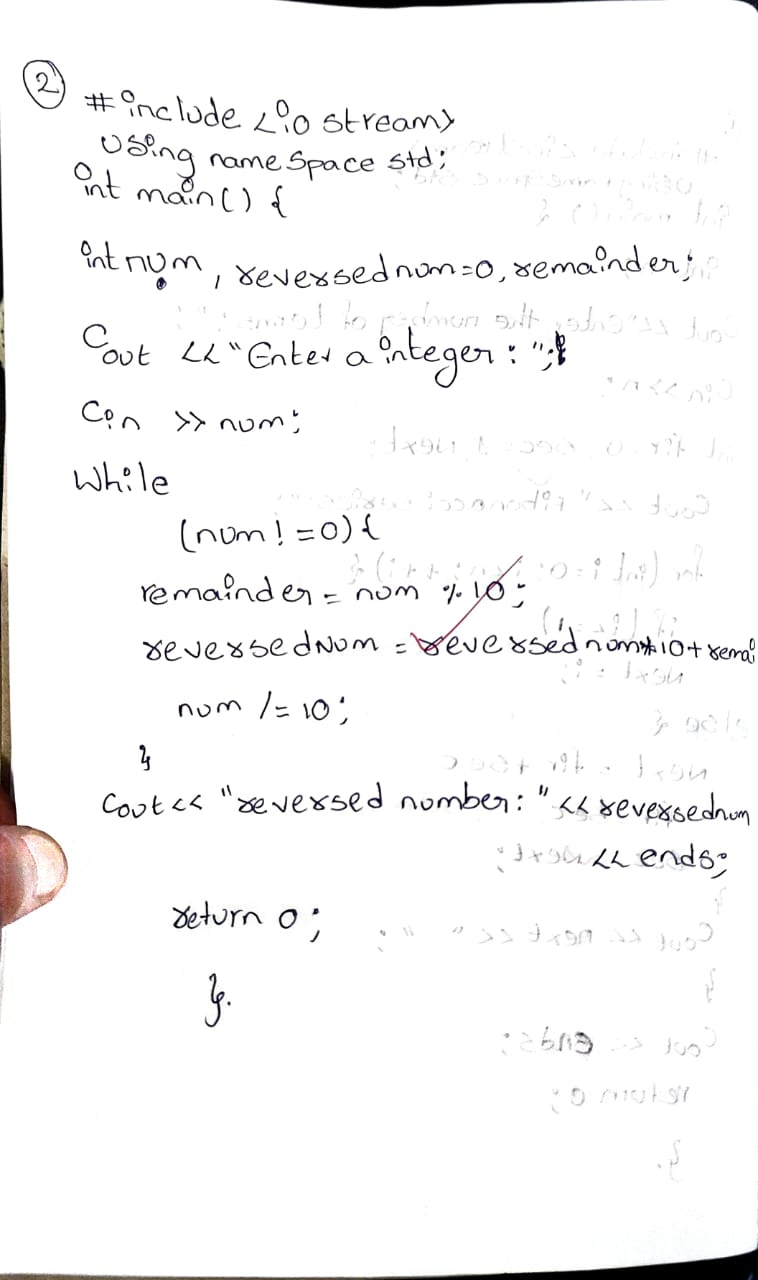 ②
#include <iostream>
using namespace std;
int main() {
int num, reversednum=0, remainder;
Cout << "Enter a integer : ";
Cin >> num;
While
(num! =0){
remainder = num % 10;
reversedNum = reversednum*10+remai
num /= 10;
}
Cout<< "reversed number: " << reversednum
<< ends;
return 0;
}.